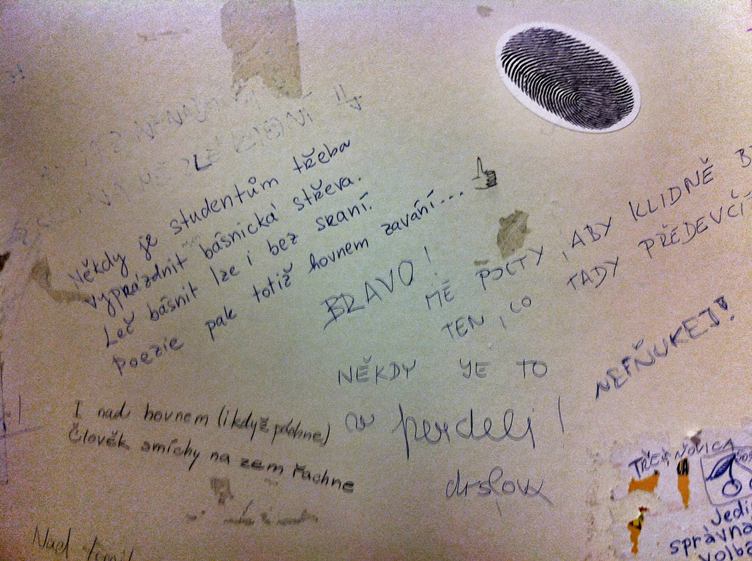 Někdy je studentům třeba
vyprázdnit básnická střeva.
Leč básnit lze i bez sraní.
Poezie pak totiž hovnem zavání...
BRAVO!
MÉ POCTY, ABY KLIDNĚ
TEN, CO TADY PŘEDEVČÍ
NĚKDY JE TO
v perdeli!
drslox
NEFŇUKEJ!
I nad hovnem (i když páchne)
Člověk smíchy na zem řachne
TŘEŠNOVICA
Jedi
správná
volba
Nad